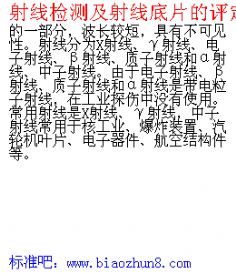 射线检测及射线底片的评定
的一部分，波长较短，具有不可见
性。射线分为X射线、γ射线、电
子射线、β射线、质子射线和α射
线、中子射线。由于电子射线、β
射线、质子射线和α射线是带电粒
子射线，在工业探伤中没有使用。
常用射线是X射线、γ射线，中子
射线常用于核工业、爆炸装置、汽
轮机叶片、电子器件、航空结构件
等。
标准吧：www.biaozhun8.com